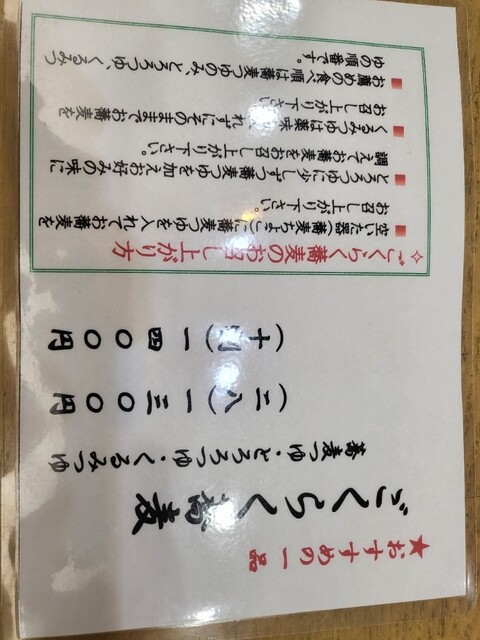 ★おすすめの一品
ごくらく蕎麦
蕎麦つゆ・とろろつゆ・くるみつゆ
(二八)一三〇〇円
(十割)一四〇〇円
✧ごくらく蕎麦のお召し上がり方
■空いた器(蕎麦ちょこ)に蕎麦つゆを入れてお蕎麦を
お召し上がり下さい。
■とろろつゆに少しずつ蕎麦つゆを加えお好みの味に
調えてお蕎麦をお召し上がり下さい。
■くるみつゆは薬味を入れずにそのままでお蕎麦を
お召し上がり下さい
■お薦めの食べ順は蕎麦つゆのみ、とろろつゆ、くるみつ
ゆの順番です。